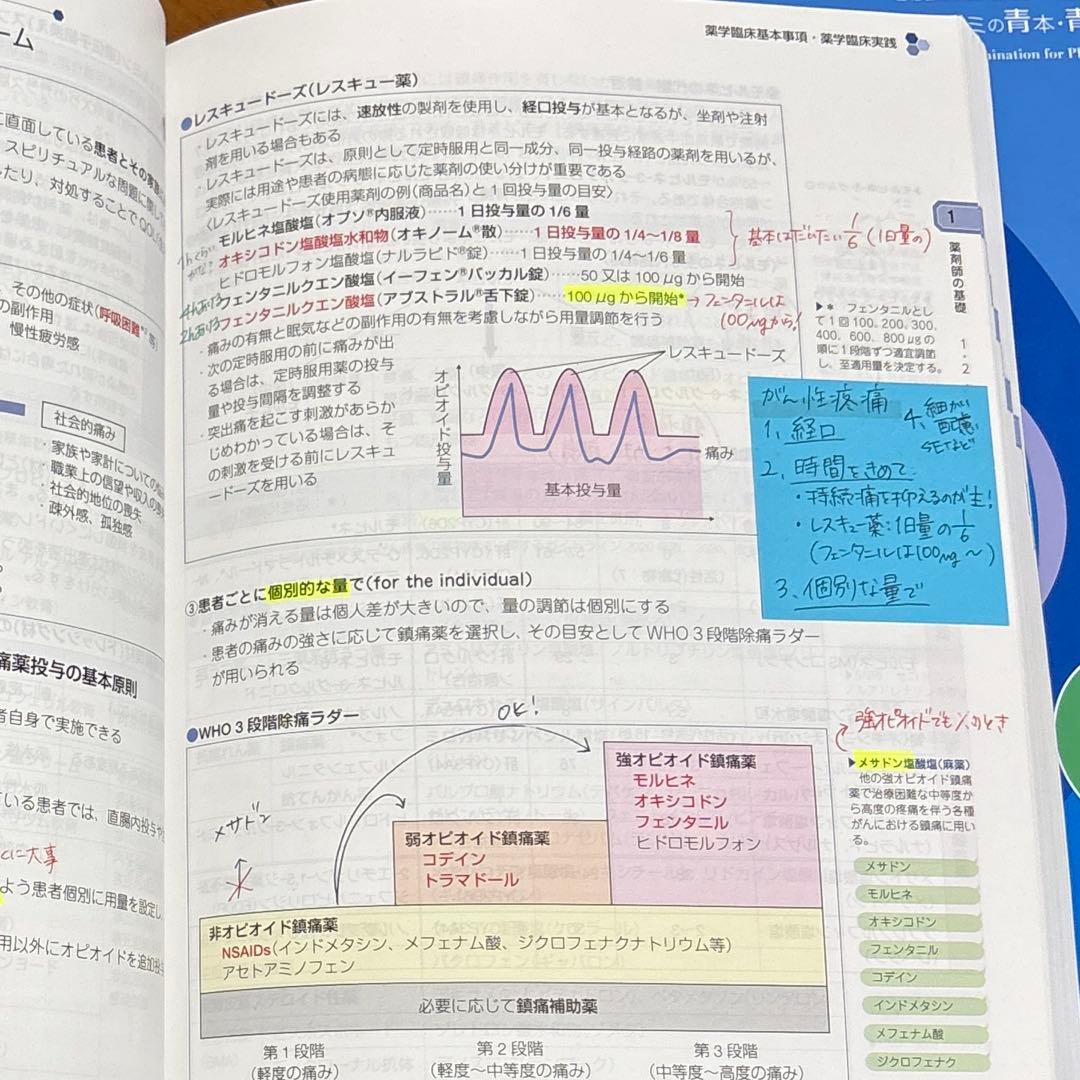 ーム
に直面している患者とその
スピリチュアルな問題に関し
したり、対処することでQOL
その他の症状(呼吸困難*等)
の副作用
慢性疲労感
社会的痛み
・家族や家計についての
・職業上の信望や収入の
・社会的地位の喪失
・疎外感、孤独感
痛薬投与の基本原則
者自身で実施できる
ている患者では、直腸内投与や
に大事
よう患者個別に用量を設定し
用以外にオピオイドを追加投与
薬学臨床基本事項・薬学臨床実践
ミの青本・青
ination for Ph
●レスキュードーズ(レスキュー薬)
・レスキュードーズには、速放性の製剤を使用し、経口投与が基本となるが、坐剤や注射
剤を用いる場合もある
・レスキュードーズは、原則として定時服用と同一成分、同一投与経路の薬剤を用いるが、
実際には用途や患者の病態に応じた薬剤の使い分けが重要である
〈レスキュードーズ使用薬剤の例(商品名)と1回投与量の目安〉
モルヒネ塩酸塩(オプソ®内服液)……1日投与量の1/6量
オキシコドン塩酸塩水和物(オキノーム®散)……1日投与量の1/4〜1/8量
ヒドロモルフォン塩酸塩(ナルラピド®錠)……1日投与量の1/4〜1/6量
フェンタニルクエン酸塩(イーフェン®バッカル錠)……50又は100μgから開始
フェンタニルクエン酸塩(アブストラル®舌下錠)……100μgから開始*
基本はだいたい1/6(1日量の)
4hあける
2hあける
→フェンタニルは
100μgから!
・痛みの有無と眠気などの副作用の有無を考慮しながら用量調節を行う
・次の定時服用の前に痛みが出
る場合は、定時服用薬の投与
量や投与間隔を調整する
・突出痛を起こす刺激があらか
じめわかっている場合は、そ
の刺激を受ける前にレスキュ
ードーズを用いる
オピオイド投与量
レスキュードーズ
痛み
基本投与量
1
薬剤師の基礎
1・2
▶* フェンタニルとし
て1回100、200、300、
400、600、800μgの
順に1段階ずつ適宜調節
し、至適用量を決定する。
がん性疼痛
1、経口
4、細かい
配慮
SEなど
2、時間をきめて
・持続痛を抑えるのが主!
・レスキュー薬:1日量の1/6
(フェンタニルは100μg〜)
3、個別な量で
③患者ごとに個別的な量で(for the individual)
・痛みが消える量は個人差が大きいので、量の調節は個別にする
・患者の痛みの強さに応じて鎮痛薬を選択し、その目安としてWHO3段階除痛ラダー
が用いられる
●WHO3段階除痛ラダー
OK!
メサドン
強オピオイド鎮痛薬
モルヒネ
オキシコドン
フェンタニル
ヒドロモルフォン
弱オピオイド鎮痛薬
コデイン
トラマドール
非オピオイド鎮痛薬
NSAIDs(インドメタシン、メフェナム酸、ジクロフェナクナトリウム等)
アセトアミノフェン
必要に応じて鎮痛補助薬
第1段階
(軽度の痛み)
第2段階
(軽度〜中等度の痛み)
第3段階
(中等度〜高度の痛み)
強オピオイドでも
のとき
▶メサドン塩酸塩(麻薬)
他の強オピオイド鎮痛
薬で治療困難な中等度か
ら高度の疼痛を伴う各種
がんにおける鎮痛に用い
る。
メサドン
モルヒネ
オキシコドン
フェンタニル
コデイン
インドメタシン
メフェナム酸
ジクロフェナク